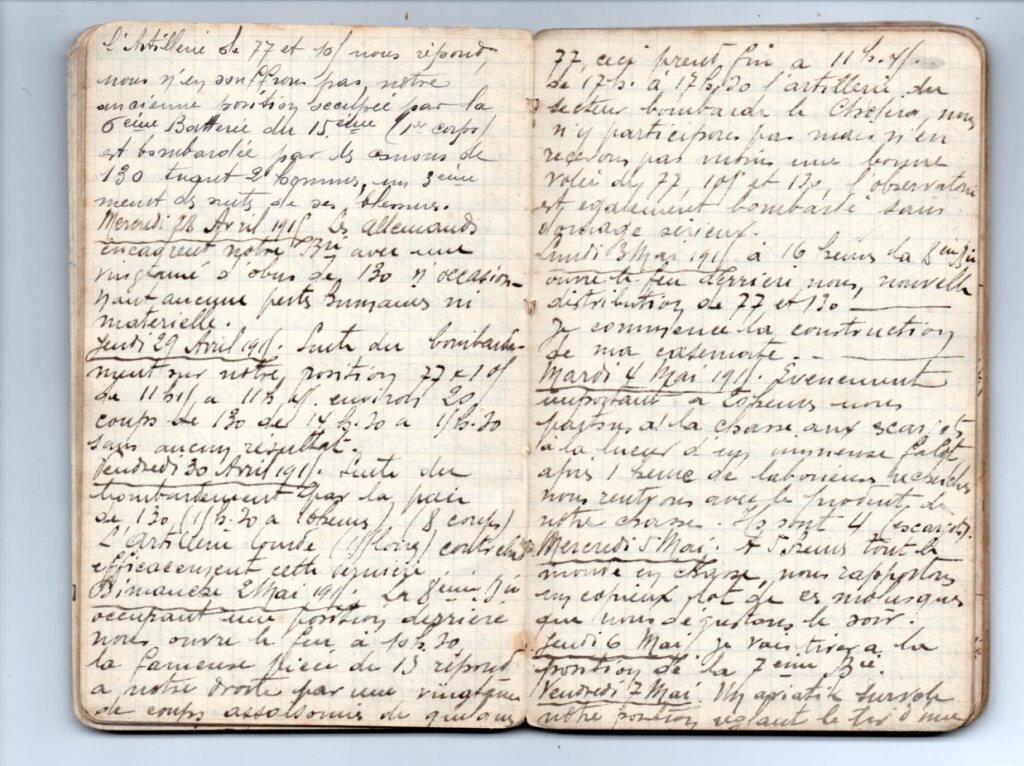 l'Artillerie de 77 et 105 nous répond,
nous n'en souffrons pas notre
ancienne position occupée par la
6eme Batterie du 15eme (1er corps)
est bombardée par les canons de
130 tuant 2 hommes, un 3eme
meurt des suites de ses blessures.
Mercredi 28 Avril 1915. Les Allemands
encagent notre Bie avec une
vingtaine d'obus de 130 n'occasion-
nant aucune perte humaines ni
materielle.
Jeudi 29 Avril 1915. Suite du bombarde-
ment sur notre position 77 & 105
de 11h15 a 11h 45. environ 20
coups de 130 de 14h.30 a 15h.30
sans aucun résultat.
Vendredi 30 Avril 1915. Suite du
bombardement par la pièce
de 130 (15h.30 a 16 heures) (8 coups)
L'Artillerie lourde contrebat
efficacement cette dernière
Dimanche 2 Mai 1915. La 8eme Bie
occupant une position derrière
nous ouvre le feu à 10h.30
la fameuse pièce de 13 répond
a notre droite par une vingtaine
de coups de quelques
77, ceci prend fin a 11h.45.
de 17h. à 17h.30 l'artillerie du
secteur bombarde le Choléra, nous
n'y participons pas mais n'en
recevons pas moins une bonne
volée de 77, 105 et 130, l'observatoire
est egalement bombardé sans
domage sérieux.
Lundi 3 Mai 1915. à 16 heures la 8eme Bie
ouvre le feu derrière nous, nouvelle
distribution de 77 et 130
Je commence la construction
de ma casemate.
Mardi 4 Mai 1915. Evenement
important a heures nous
partons à la chasse aux escargots,
à la lueur d'un immense falot
apres 1 heure de laborieuses recherches
nous rentrons avec le produit de
notre chasse. Ils sont 4 (escargots).
Mercredi 5 Mai. A 5 heures tout le
monde en chasse, nous rapportons
un copieux plat de ces molusques
que nous dégustons le soir.
Jeudi 6 Mai je vais tirer a la
position de la 7eme Bie.
Vendredi 7 Mai. Un aviatik survole
notre position réglant le tir d'une